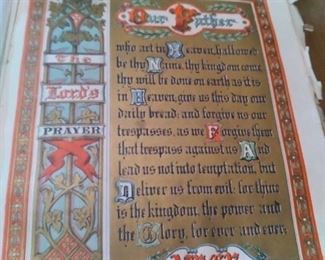 The
Lord's
PRAYER
Our Father
who art in Heaven, hallowed
be thy Name, thy kingdom come
thy will be done on earth as it is
in Heaven, give us this day our
daily bread; and forgive us our
trespasses, as we Forgive them
that trespass against us And
lead us not into temptation, but
Deliver us from evil: for thine
is the kingdom, the power and
the Glory, for ever and ever.